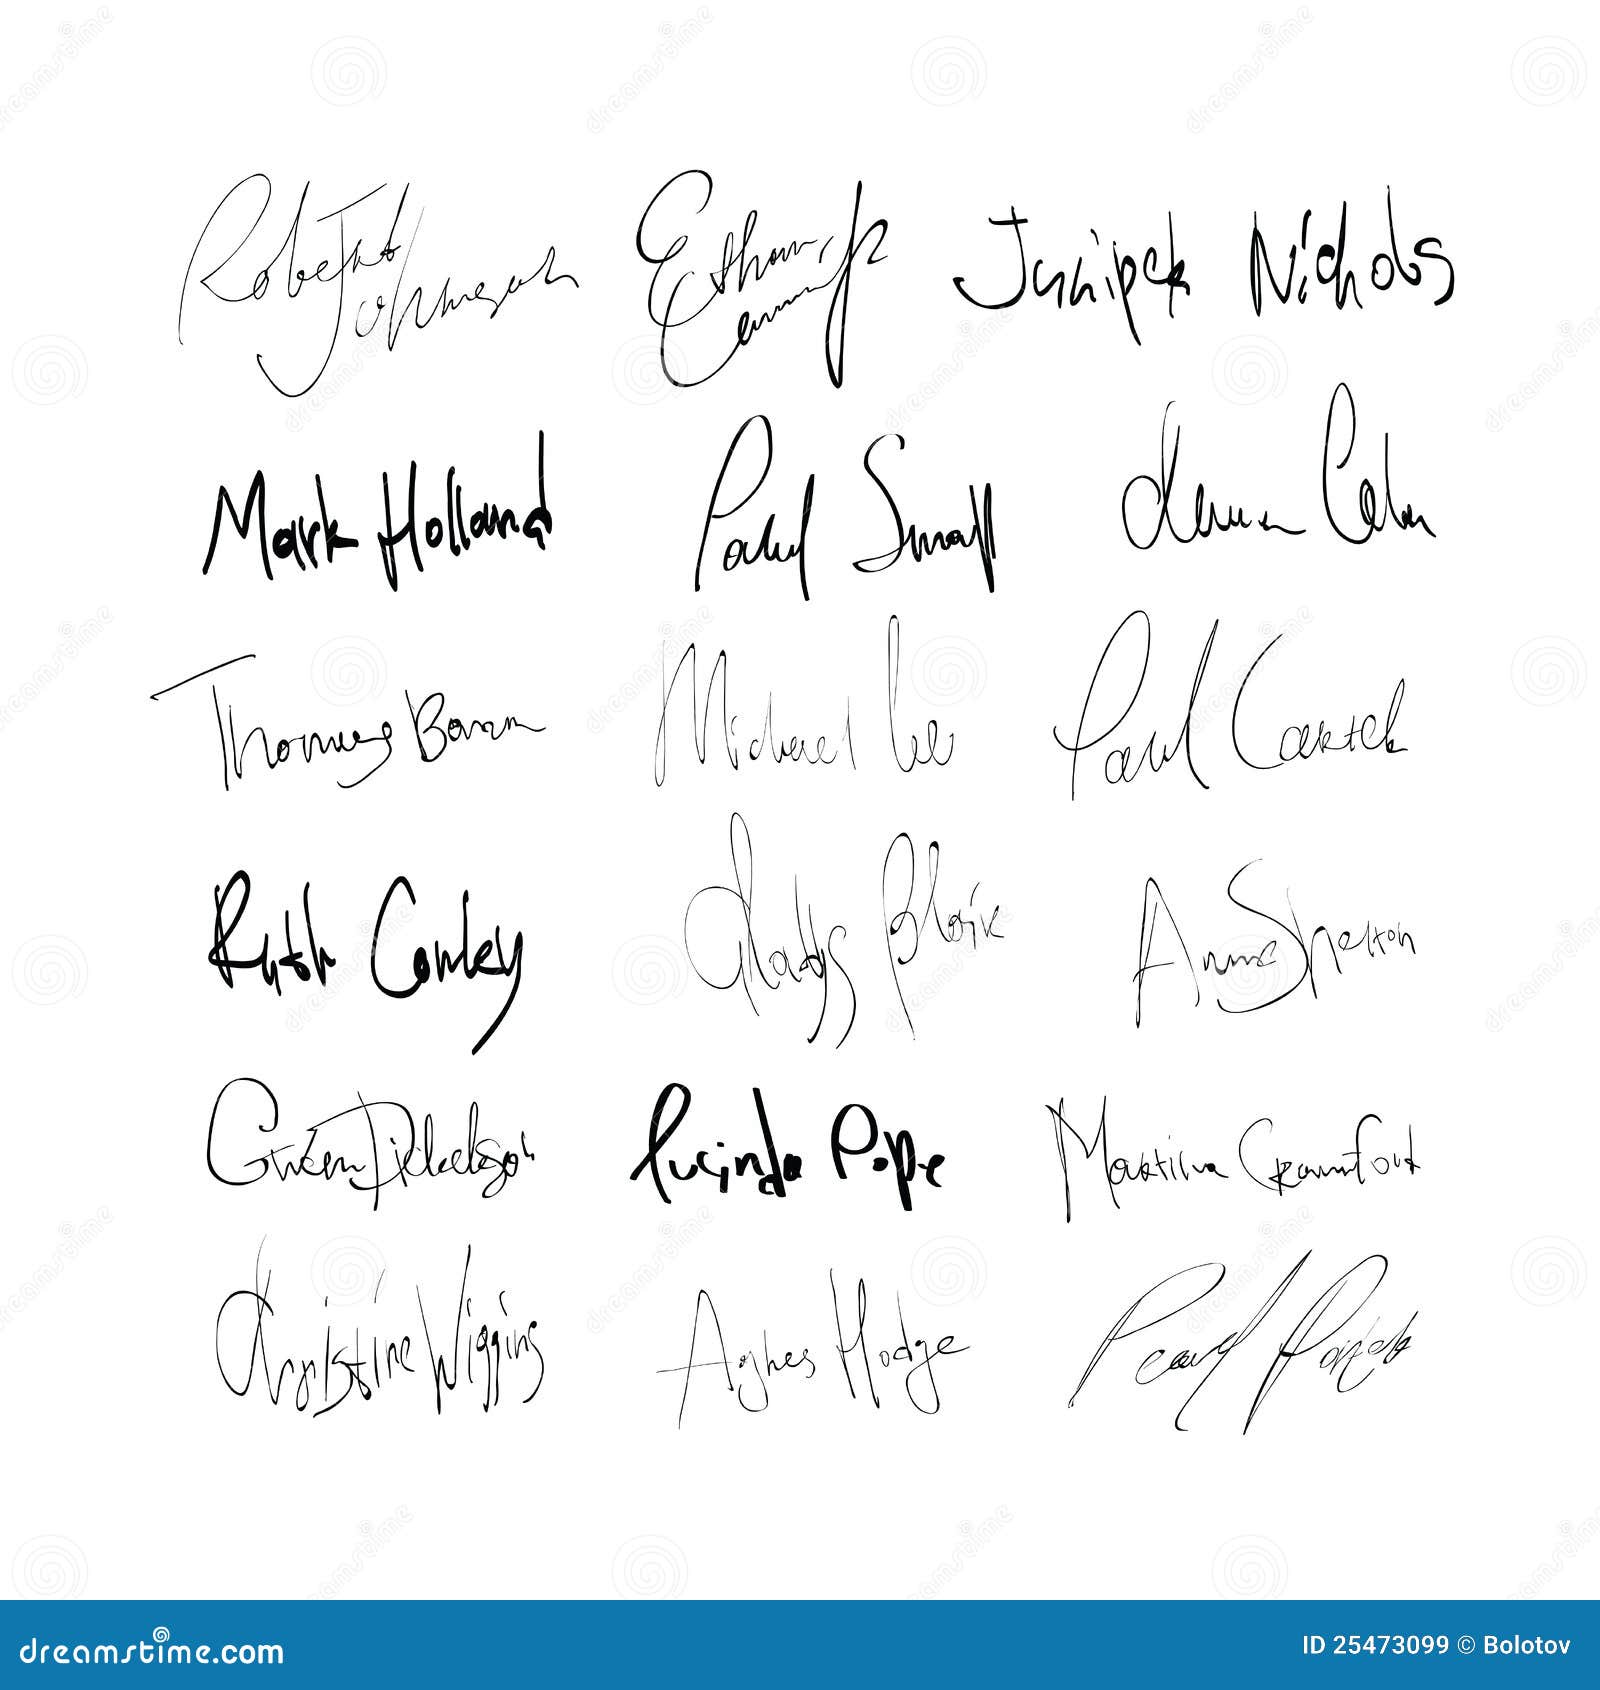 Robert Johnson Ethan Juniper Nichols
Mark Holland Paul Small
Thomas Baron Michael Lee Paul Carter
Ruth Conley Gladys Blair Anne Shelton
Gwen Dickelson Lucinda Pope Martina Crawford
Christine Wiggins Agnes Hodge Pearl Porter
dreamstime.com ID 25473099 © Bolotov